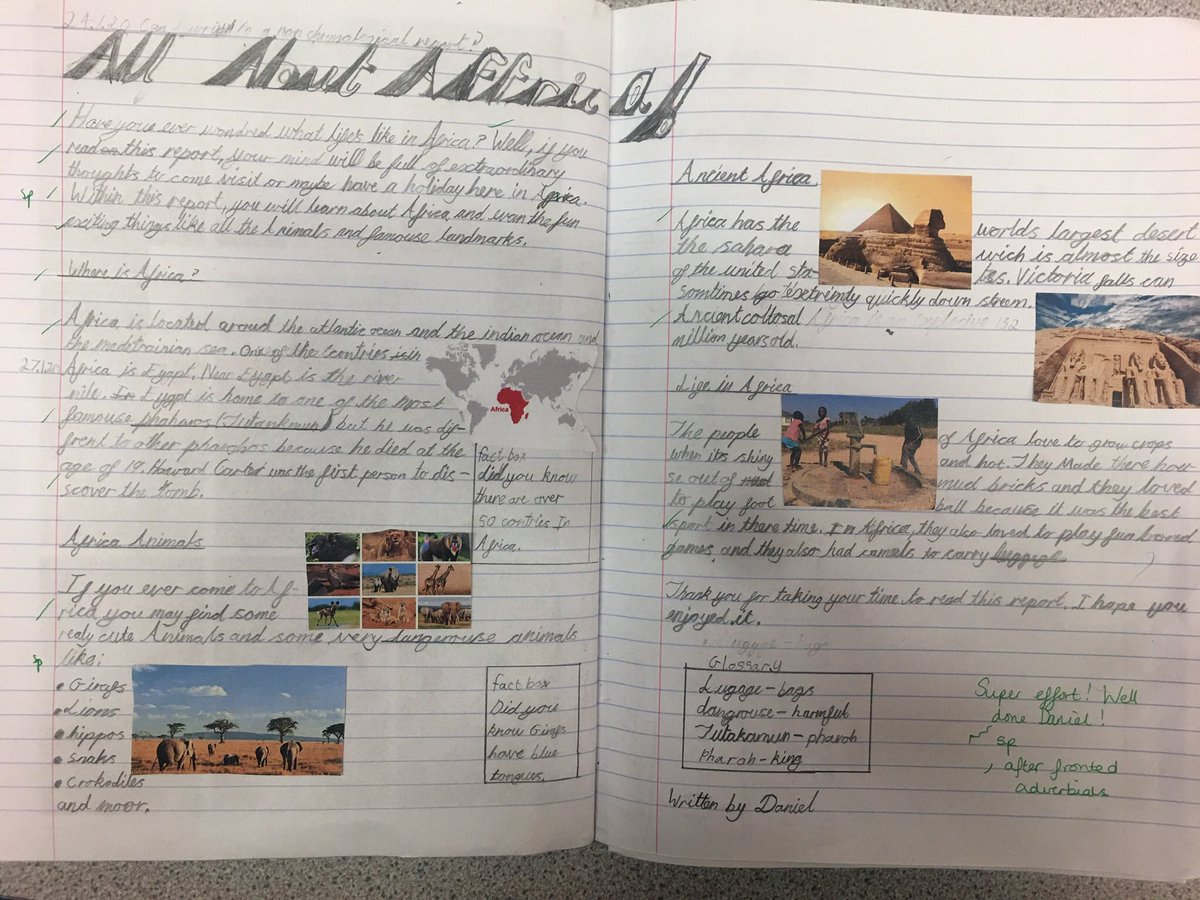 24.1.20 Can I write a non chronological report?
All About Affrica!
Have youe ever wondred what life's like in Africa? Well, if you
read this report, your mind will be full of extraordinary
thoughts to come visit or maybe have a holiday here in Africa.
sp
Within this report, you will learn about Africa and the fun
exciting things like all the Animals and famouse landmarks.
Where is Africa?
Africa is located around the atlantic ocean and the indian ocean and
the meditrainian sea. One of the contries in
27.1.20
Africa is Egypt. Near Eygpt is the river
nile. In Eygpt is home to one of the most
famouse phoharos (Tutankmun) but he was dif-
frent to other pharohos because he died at the
age of 19. Howard Carter was the first person to dis-
scover the tomb.
Africa
fact box
did you know
there are over
50 contries In
Africa.
Africa Animals
If you ever come to Af-
rica you may find some
realy cute Animals and some very dangerouse animals
sp
like:
• Girafs
• Lions
• hippos
• Snaks
• Crokodiles
and moor.
fact box
Did you
know Girafs
have blue
tongues.
Ancient Africa.
Africa has the worlds largest desert
the sahara wich is almost the size
of the united sta- tes. Victoria falls can
somtimes go extrimly quickly down streem.
Ancient collosal Africa is an 132
million years old.
Life in Africa
The people of Africa love to grow crops
when its shiny and hot. They Made there hou-
se out of mud bricks and they loved
to play foot ball because it was the best
sport in there time. In Africa, they also loved to play fun bored
games and they also had camels to carry luggige
Thank you for taking your time to read this report. I hope you
enjoyed it.
Glossary
Lugage - bags
dangrouse - harmful
Tutakamun - pharoh
Pharoh - king
Written by Daniel
Super effort! Well
done Daniel!
sp
, after fronted
adverbials